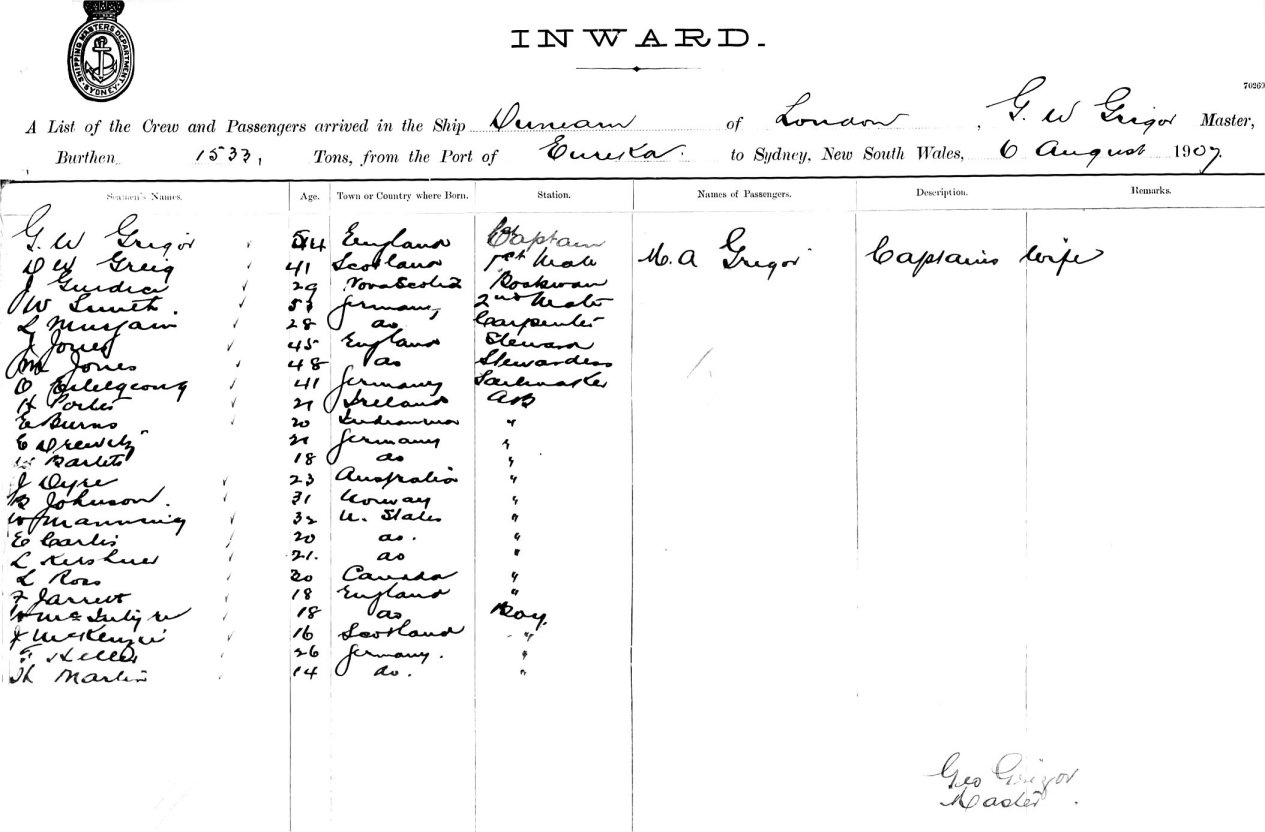 SHIPPING MASTERS DEPARTMENT. SYDNEY.
INWARD.
70269
A List of the Crew and Passengers arrived in the Ship Duncam of London, G. W Grigor Master,
Burthen 1533, Tons, from the Port of Eureka to Sydney, New South Wales, 6 August 1907.
Seamen's Names. Age. Town or Country where Born. Station. Names of Passengers. Description. Remarks.
G. W Grigor 54 England Captain M. A Grigor Captains wife
D W Greig 41 Scotland 1st Mate
J 29 Nova Scotia
W Smith. 53 Germany 2nd Mate
L 28 do Carpenter
J Jones 45 England Steward
M Jones 48 do Stewardess
O 41 Germany Sailmaker
H Porter 21 Ireland AB
E Burns 20 "
E Drewitz 21 Germany "
W Bartels 18 do "
J Dyre 23 Australia "
B Johnson. 31 Norway "
W Manning 32 U. States "
E Carlis 20 do. "
L Kershner 21. do "
L Ross 20 Canada "
F Jarrett 18 England "
W McIntyre 18 do Boy.
J McKenzie 16 Scotland "
F Heller 26 Germany. "
Th Martin 14 do. "
Geo Grigor
Master.